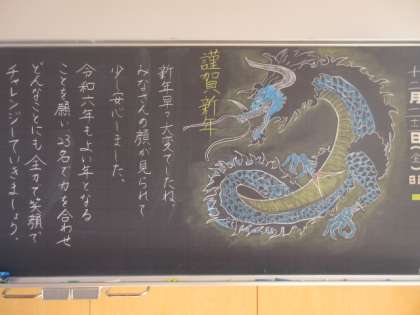 十二月三日(
謹賀新年
新年早々大変でしたね。
みなさんの顔が見られて
少し安心しました。
令和六年もよい年となる
ことを願い、23名で力を合わせ
どんなことにも全力で笑顔で
チャレンジしていきましょう。